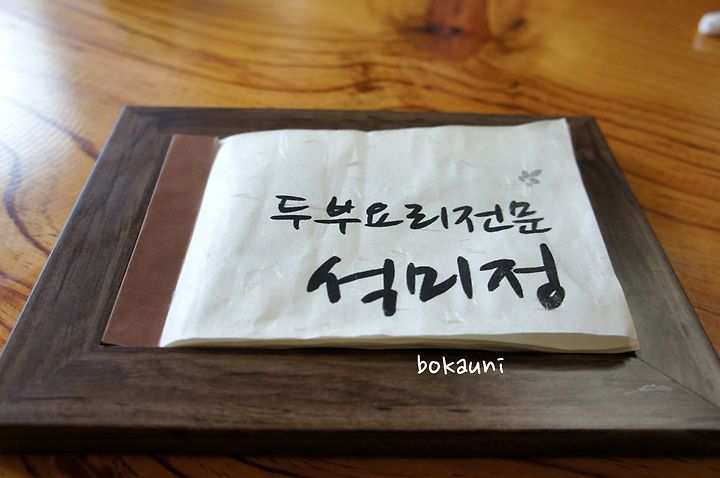 두부요리전문
석미정
bokauni